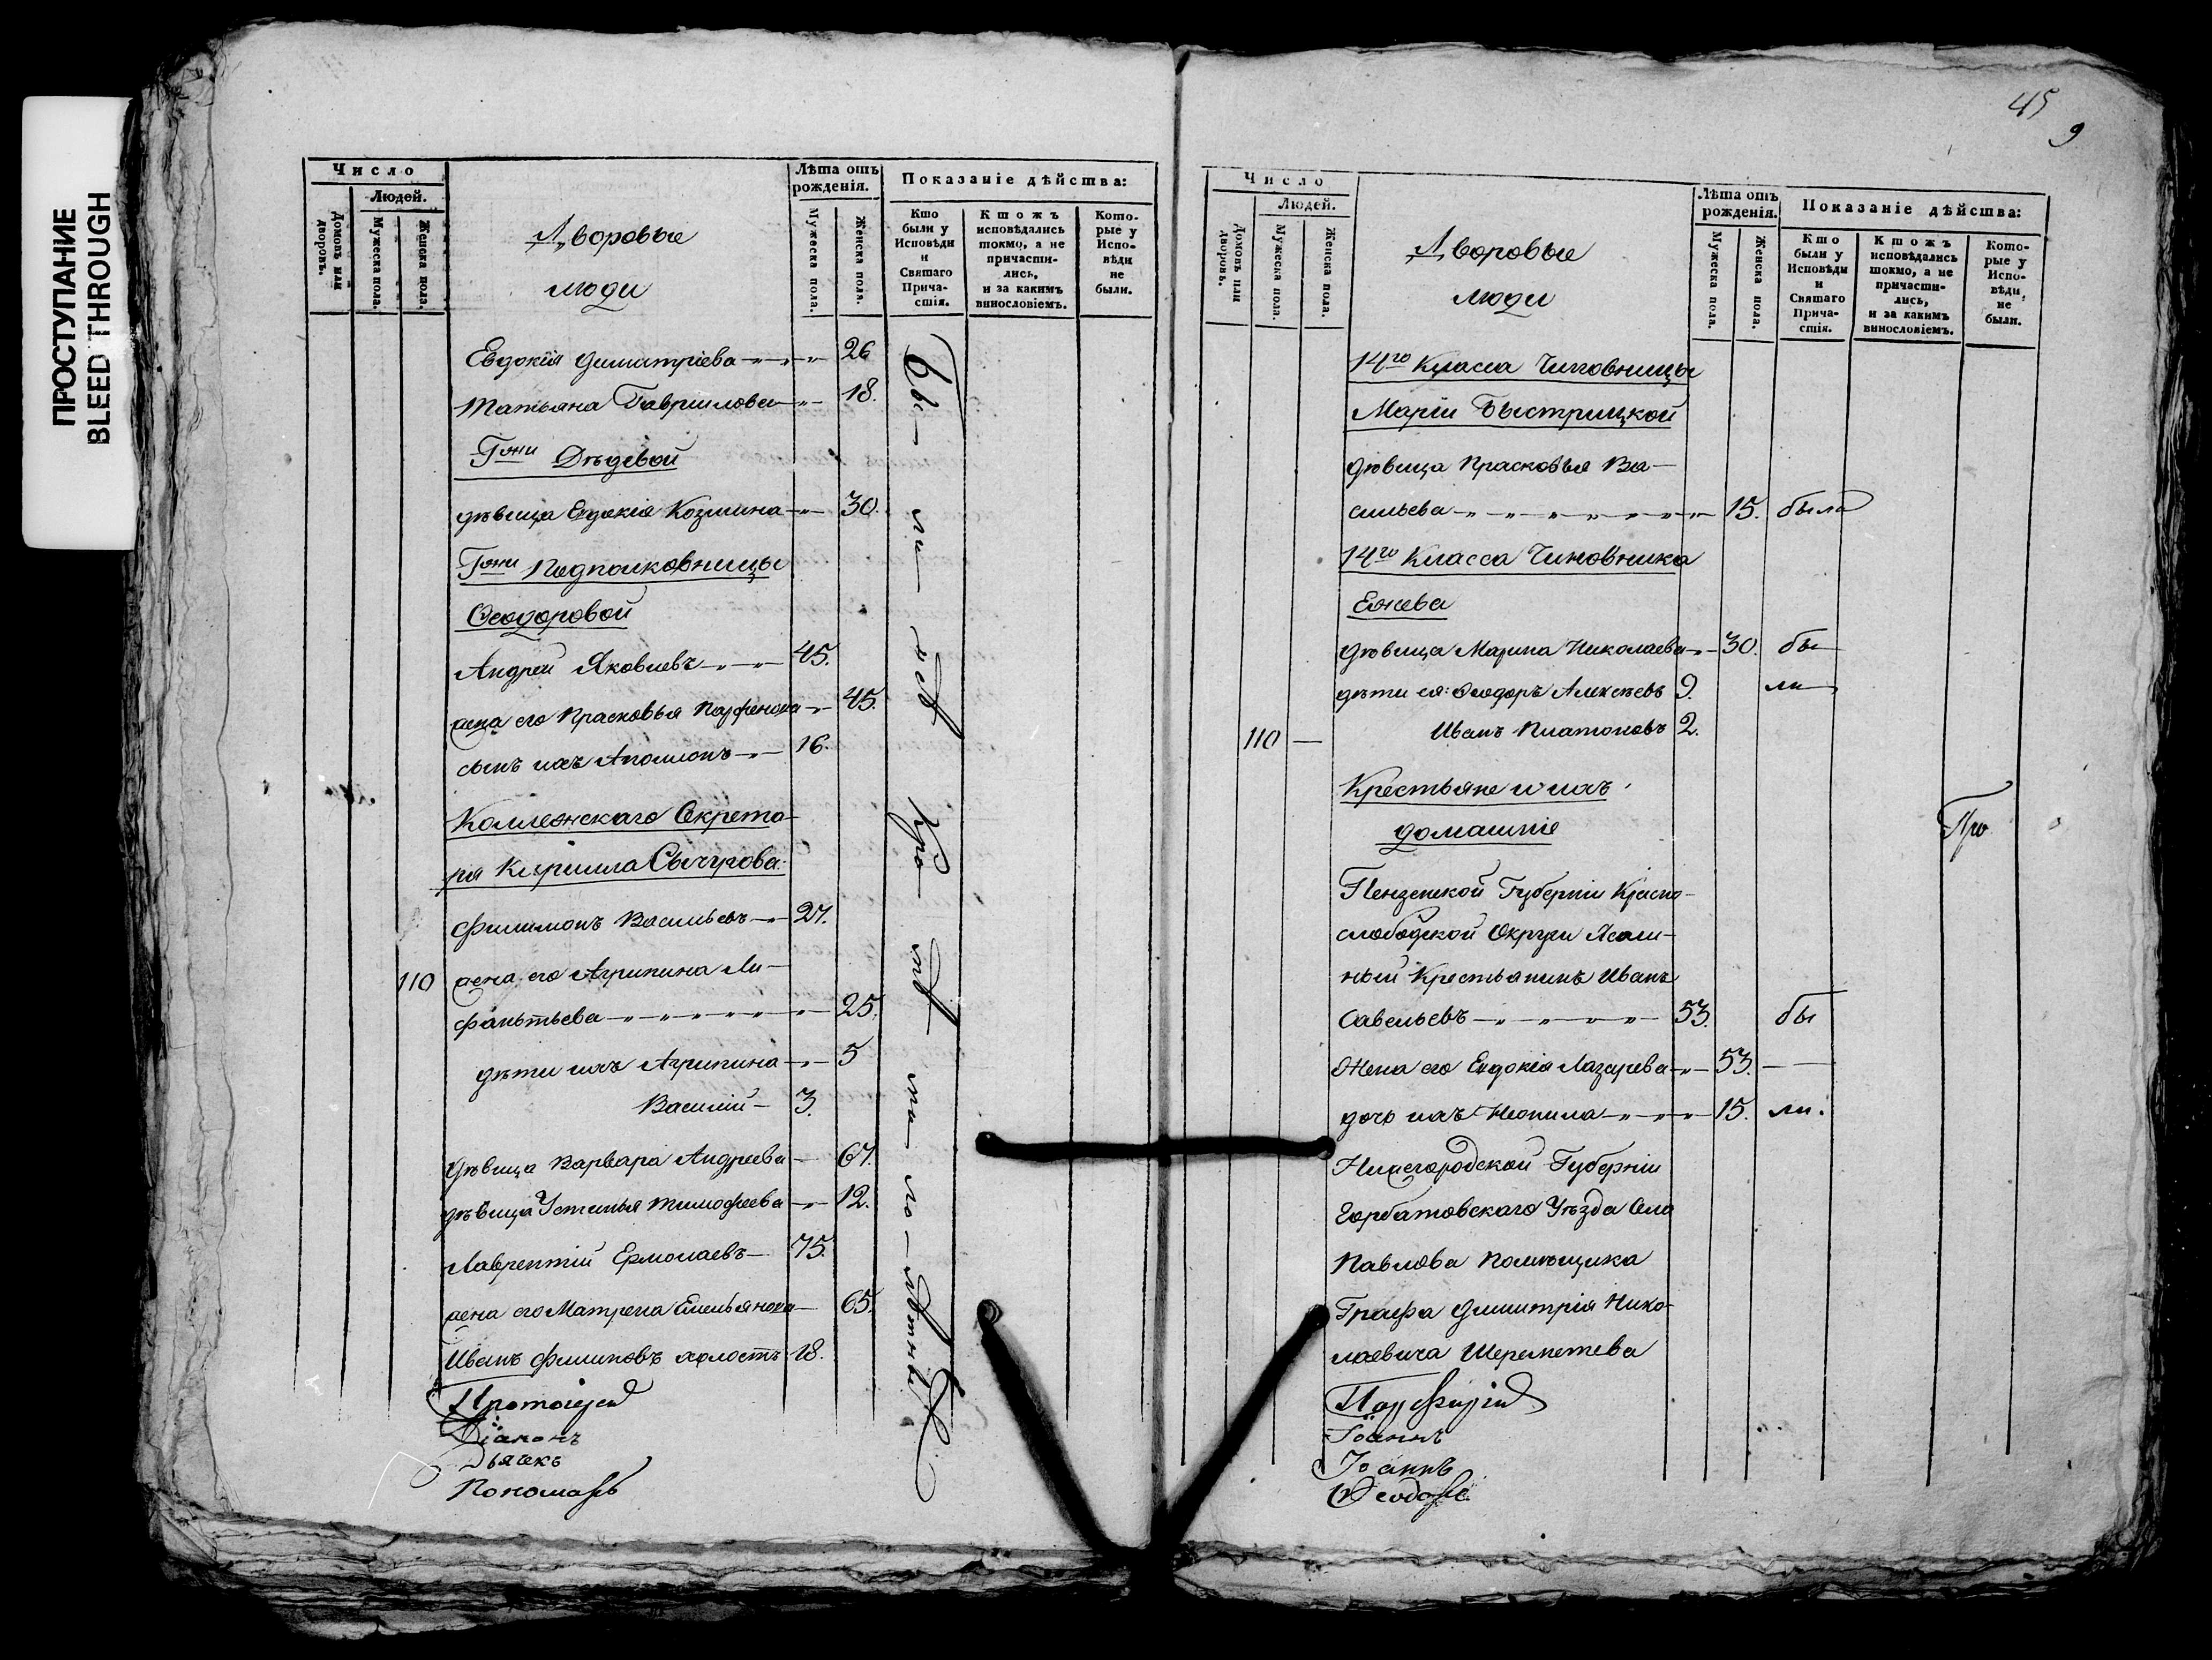 ПРОСТУПАНИЕ
BLEED THROUGH
Число
Людей.
Домовъ или дворовъ.
Мужеска пола.
Женска пола.
Дворовые
люди
Лѣта отъ
рожденія.
Мужеска пола.
Женска пола.
Показаніе дѣйства:
Кто
были у
Исповѣди
и
Святаго
Прича-
стія.
Ктожъ
исповѣдались
токмо, а не
причасти-
лись,
и за какимъ
винословіемъ.
Кото-
рые у
Испо-
вѣди
не
были.
Евдокія Димитріева 26
Татьяна Гаврилова 18.
Гжи Дѣдевой
дѣвица Евдокія Козмина 30.
Гжи Подполковницы
Ѳеодоровой
Андрей Яковлевъ 45.
жена его Прасковья Парфенова 45.
сынъ ихъ Аполлонъ 16.
Коллежскаго Секрета-
ря Кирилла Сычугова:
Филимонъ Васильевъ 27.
110 жена его Агрипина Ли-
фантьева 25.
дѣти ихъ Агрипина 5
Василій 3.
дѣвица Варвара Андреева 67.
дѣвица Устинья Тимофеева 12.
Лаврентій Ермолаевъ 75.
жена его Матрена Емельянова 65.
Иванъ Филиповъ холостъ 18.
Бы- ли- всѣ
Протоіерей
Діаконъ
Дьячекъ
Пономарь
45
9
Число
Людей.
Домовъ или дворовъ.
Мужеска пола.
Женска пола.
Дворовые
люди
Лѣта отъ
рожденія.
Мужеска пола.
Женска пола.
Показаніе дѣйства:
Кто
были у
Исповѣди
и
Святаго
Прича-
стія.
Ктожъ
исповѣдались
токмо, а не
причасти-
лись,
и за какимъ
винословіемъ.
Кото-
рые у
Испо-
вѣди
не
были.
14го Класса Чиновницы
Маріи Быстрицкой
дѣвица Прасковья Ва-
сильева 15. была
14го Класса Чиновника
Ежева
дѣвица Марина Николаева 30. бы
дѣти ея: Ѳеодоръ Алексѣевъ 9. ли
110 Иванъ Платоновъ 2.
Крестьяне и ихъ
домашніе
Пензенской Губерніи Красно-
слободской Округи Ясаш-
ный Крестьянинъ Иванъ
Савельевъ 53. бы
Жена его Евдокія Лазарева 53.
дочь ихъ Неонила 15. ли.
Нижегородской Губерніи
Горбатовскаго Уѣзда Села
Павлова Помѣщика
Графа Димитрія Нико-
лаевича Шереметева
Порфирій
Іоаннъ
Іоаннъ
Ѳеодоръ